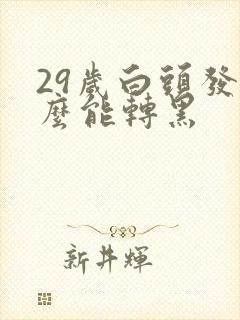 29歲白頭發
麼能轉黑
新井輝